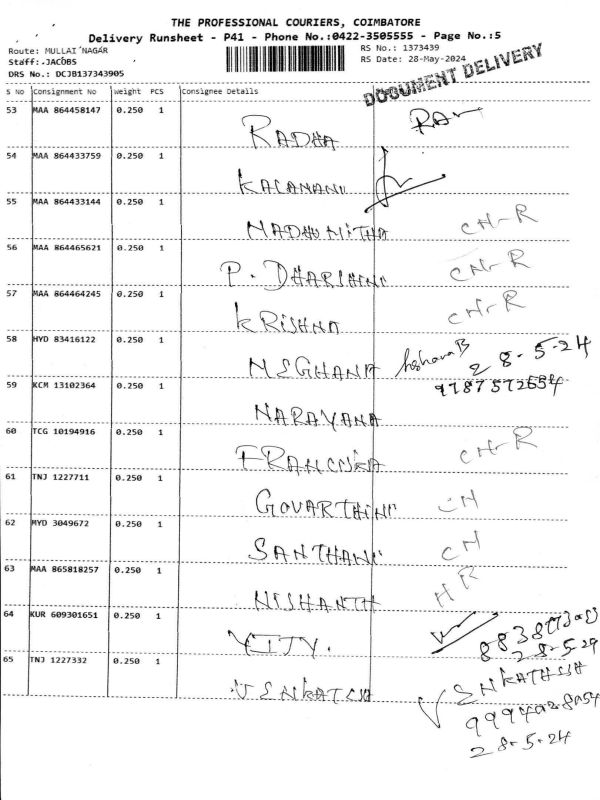 THE PROFESSIONAL COURIERS, COIMBATORE
Delivery Runsheet - P41 - Phone No.:0422-3505555 - Page No.:5
Route: MULLAI NAGAR
RS No.: 1373439
Staff:.JACOBS
RS Date: 28-May-2024
DRS No.: DCJB137343905
DOCUMENT DELIVERY
S No Consignment No Weight PCS Consignee Details
53 MAA 864458147 0.250 1
RADHA
54 MAA 864433759 0.250 1
KALAMANI
55 MAA 864433144 0.250 1
MADHUMITHA CN-R
56 MAA 864465621 0.250 1
P. DHARSHINI CN-R
57 MAA 864464245 0.250 1
KRISHNA CN-R
58 HYD 83416122 0.250 1
MEGHANA 28-5-24
59 KCM 13102364 0.250 1 9787572654
NARAYANA
60 TCG 10194916 0.250 1
FRANCISKA CN-R
61 TNJ 1227711 0.250 1
GOVARTHINI CN
62 MYD 3049672 0.250 1
SANTHANI CN
63 MAA 865818257 0.250 1
NISHANTH
64 KUR 609301651 0.250 1
28-5-24
65 TNJ 1227332 0.250 1
VENKATESH
28-5-24